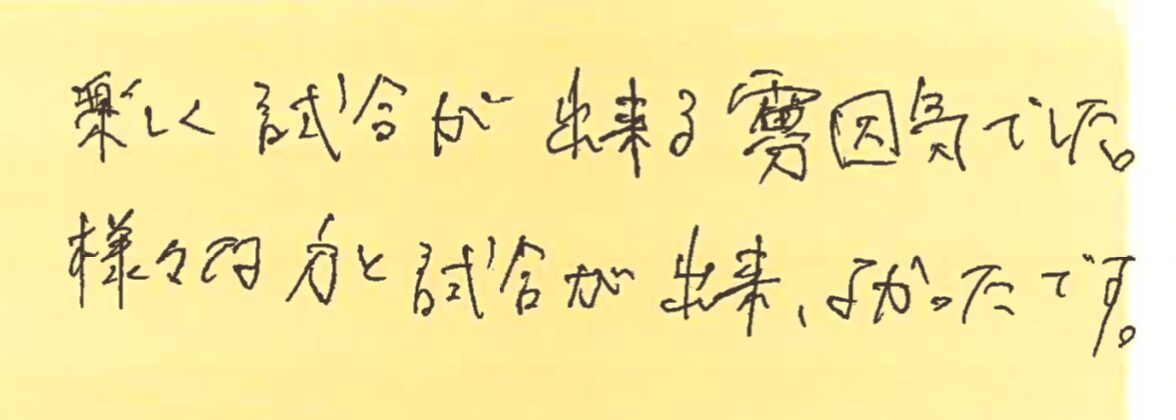 楽しく試合が出来る雰囲気でした。
様々な方と試合が出来、よかったです。